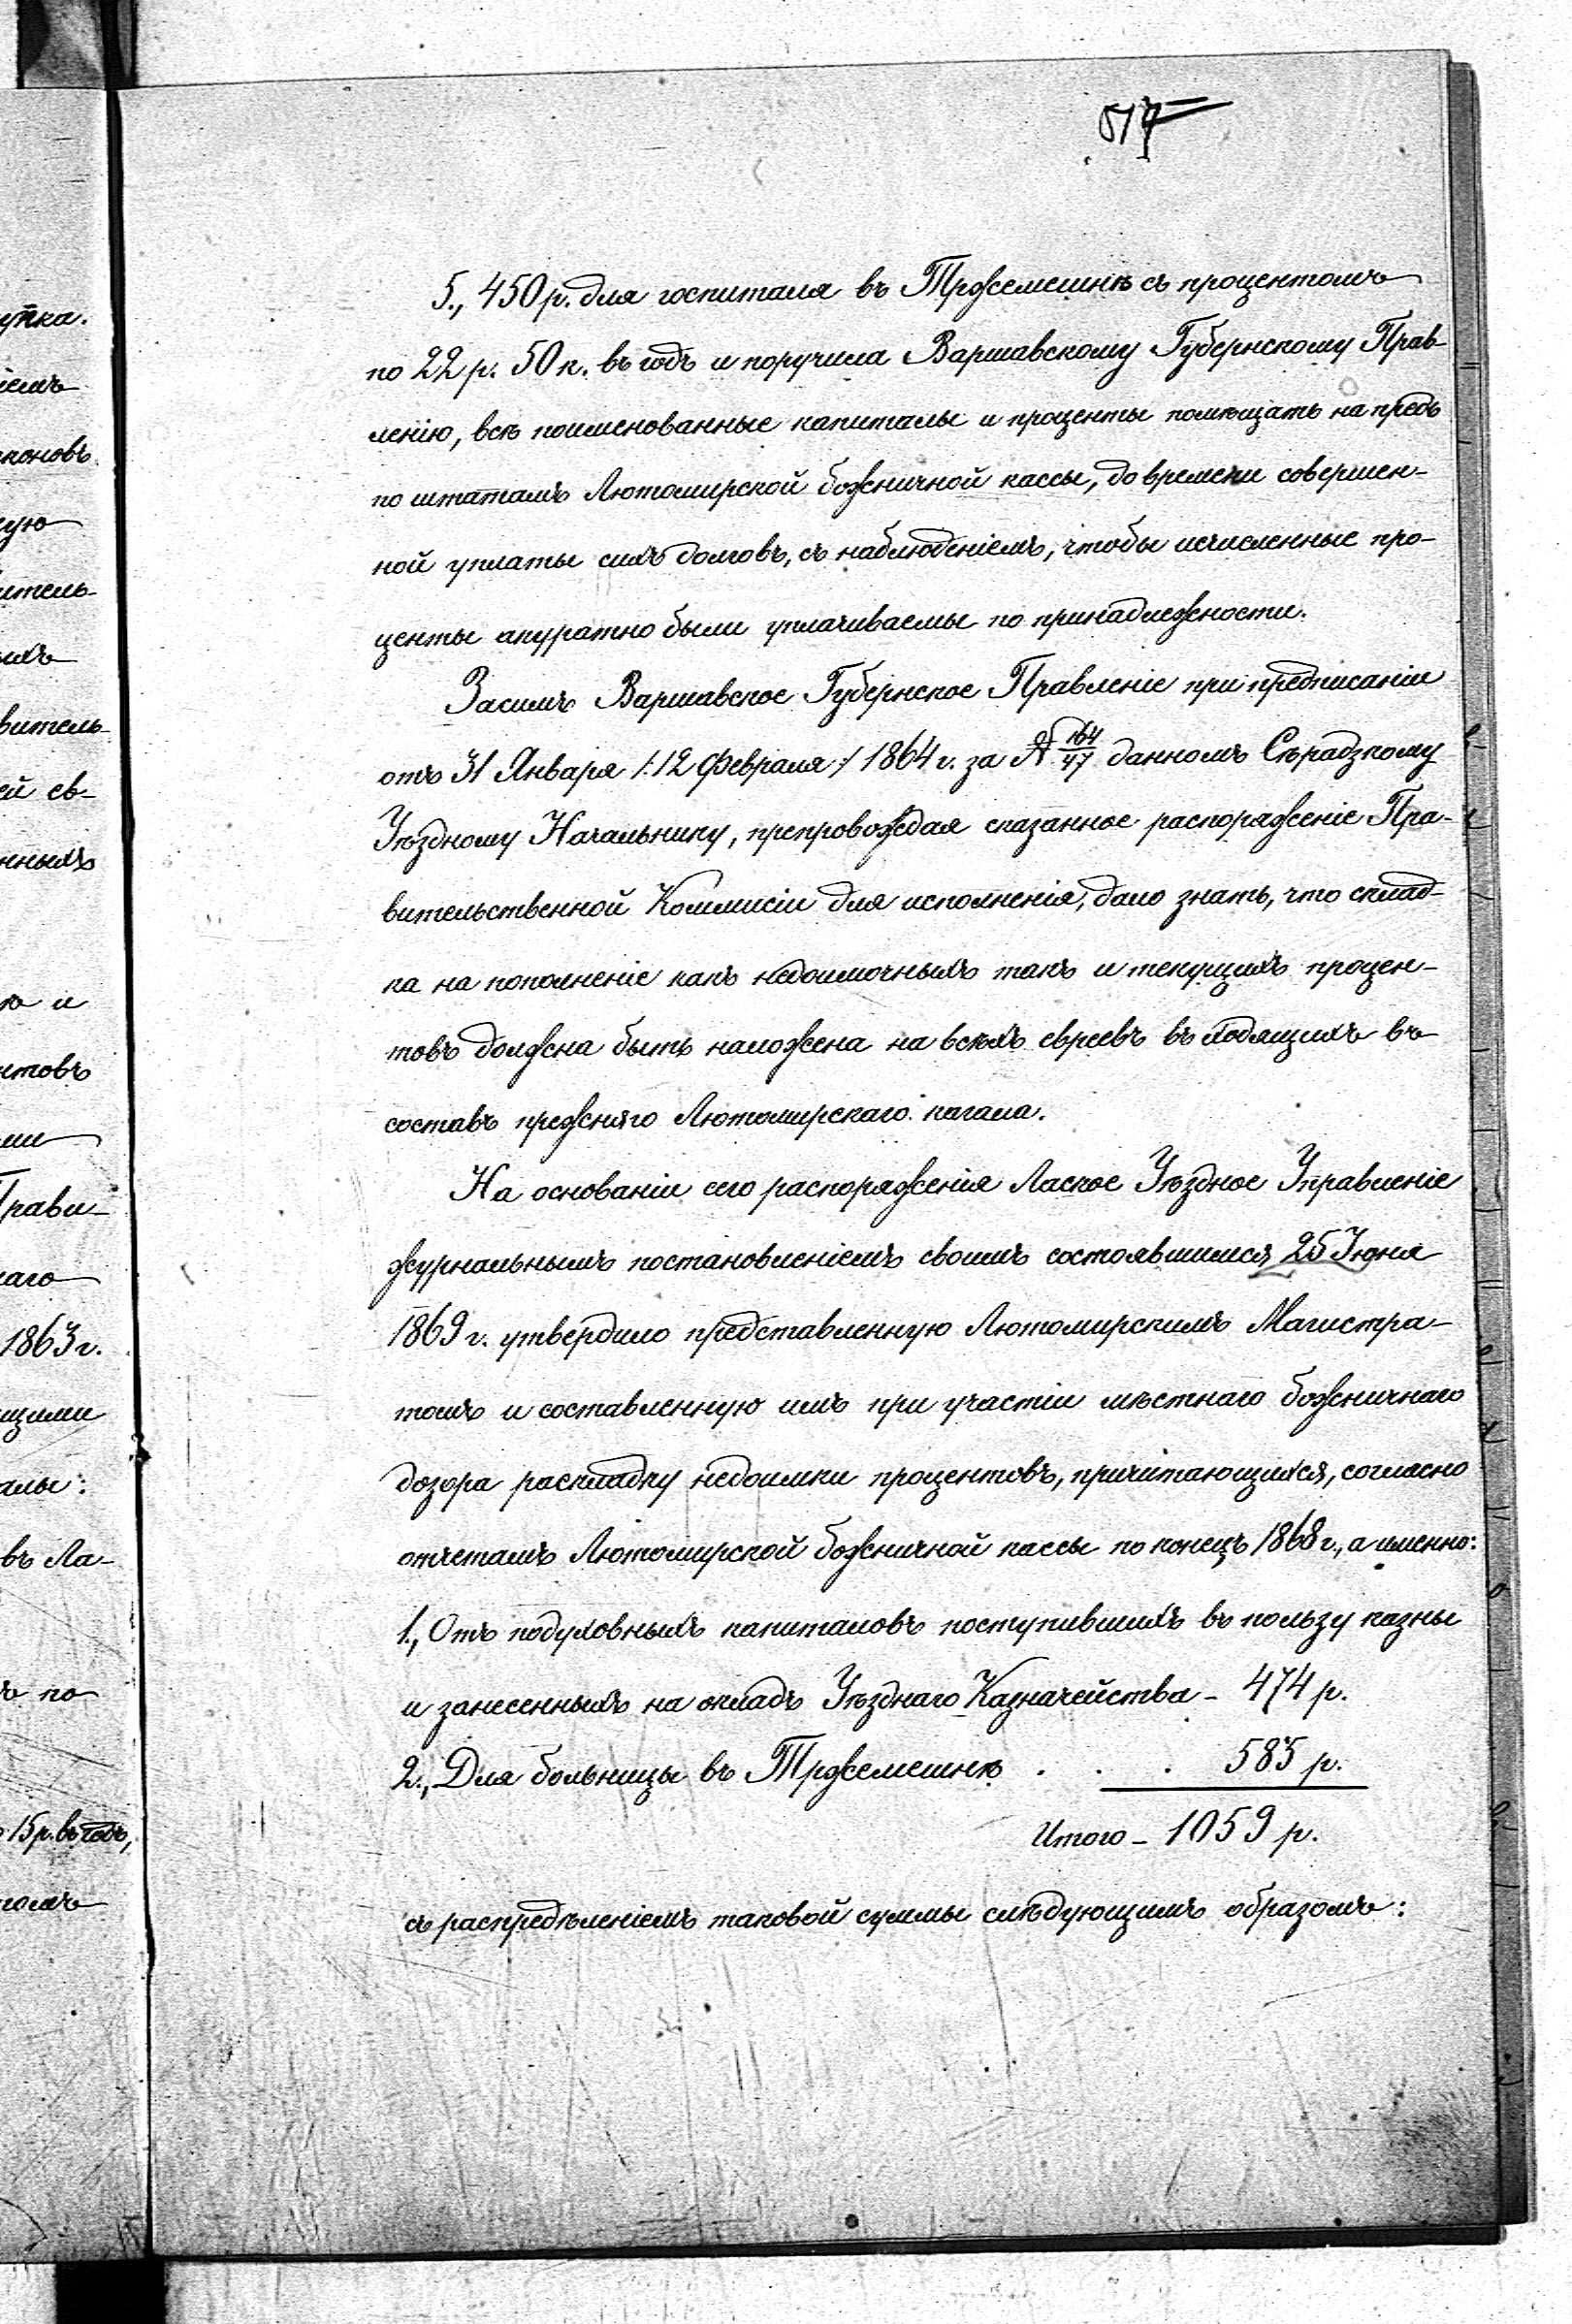 517
5., 450 р. для госпиталя въ Тржемешнѣ съ процентомъ
по 22 р. 50 к. въ годъ и поручила Варшавскому Губернскому Прав-
ленію, всѣ поименованные капиталы и проценты помѣщать на предь
по штатамъ Лютомирской божничной кассы, до времени совершен-
ной уплаты сихъ долговъ, съ наблюденіемъ, чтобы исчисленные про-
центы акуратно были уплачиваемы по принадлежности.
Засимъ Варшавское Губернское Правленіе при предписаніи
отъ 31 Января /:12 Февраля:/ 1864 г. за № 164/47 данномъ Сѣрадзкому
Уѣздному Начальнику, препровождая сказанное распоряженіе Пра-
вительственной Коммисіи для исполненія, дало знать, что склад-
ка на пополненіе какъ недоимочныхъ такъ и текущихъ процен-
товъ должна быть наложена на всѣхъ евреевъ въ ходящихъ въ
составъ прежняго Лютомирскаго кагала.
На основаніи сего распоряженія Лаское Уѣздное Управленіе
журнальнымъ постановленіемъ своимъ состоявшимся 25 Іюня
1869 г. утвердило представленную Лютомирскимъ Магистра-
томъ и составленную имъ при участіи мѣстнаго божничнаго
дозора раскладку недоимки процентовъ, причитающихся, согласно
отчетамъ Лютомирской божничной кассы по конецъ 1868 г., а именно:
1., Отъ подуховныхъ капиталовъ поступившихъ въ пользу казны
и занесенныхъ на окладъ Уѣзднаго Казначейства - 474 р.
2., Для больницы въ Тржемешнѣ . . . 585 р.
Итого - 1059 р.
съ распредѣленіемъ таковой суммы слѣдующимъ образомъ: